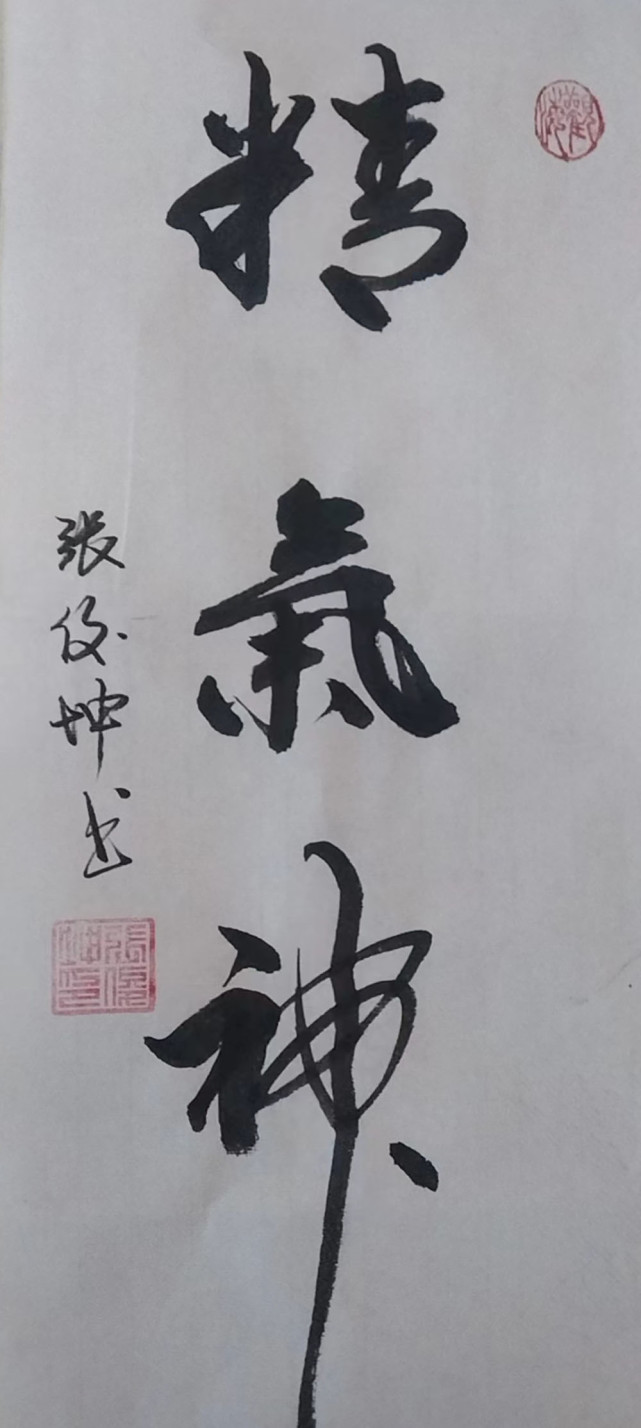 精氣神
張俊坤书